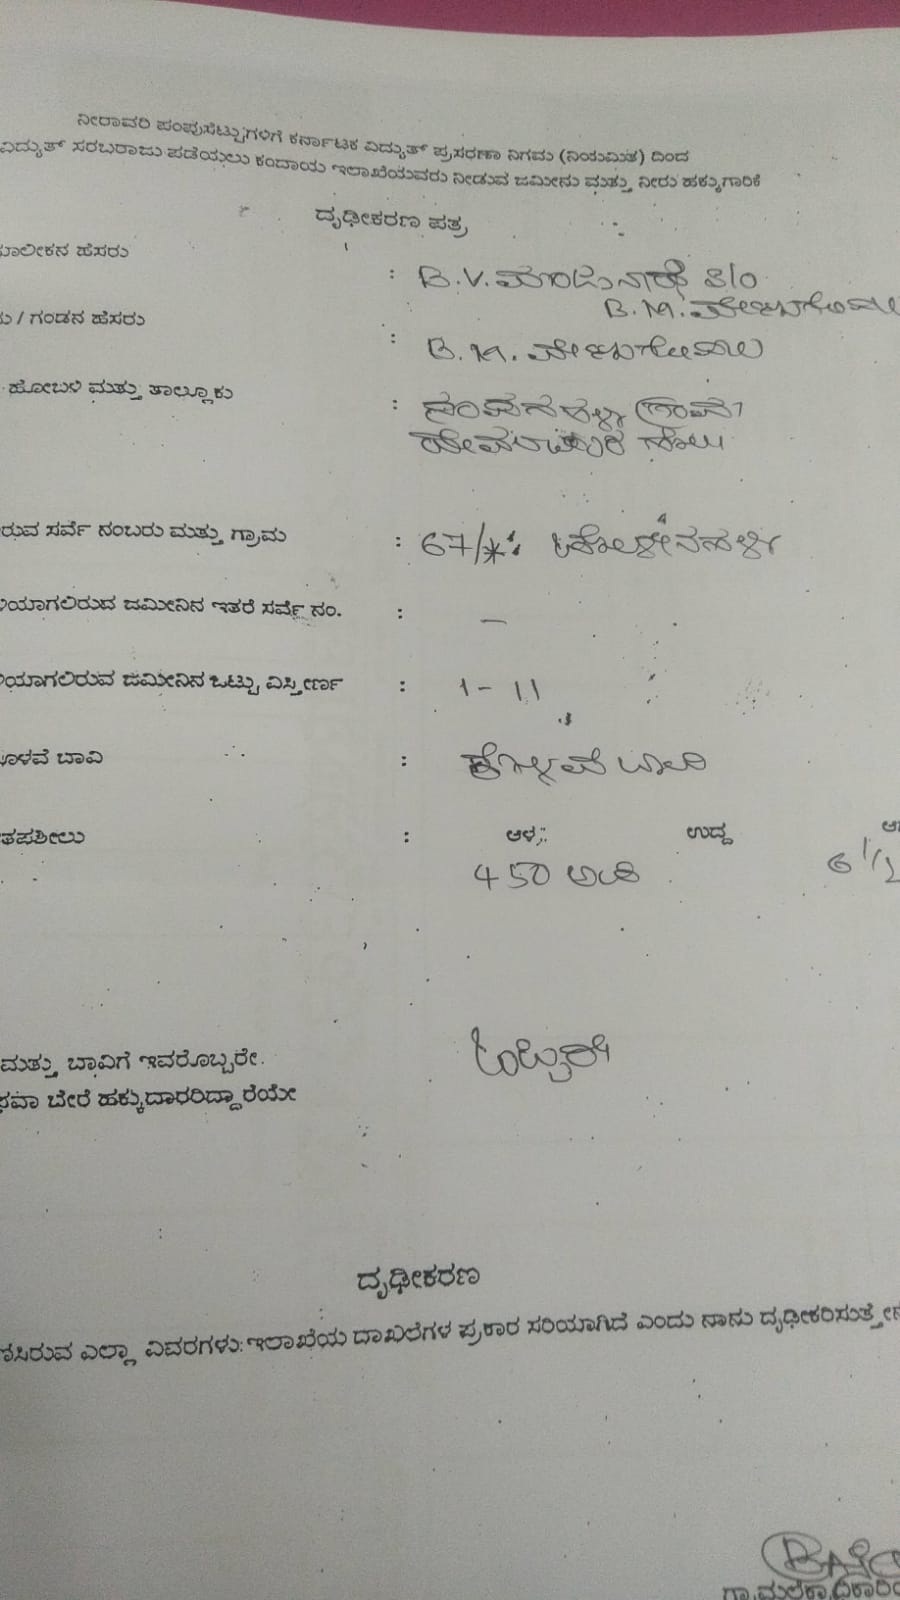 ನೀರಾವರಿ ಪಂಪುಸೆಟ್ಟುಗಳಿಗೆ ಕರ್ನಾಟಕ ವಿದ್ಯುತ್ ಪ್ರಸರಣಾ ನಿಗಮ (ನಿಯಮಿತ) ದಿಂದ
ವಿದ್ಯುತ್ ಸರಬರಾಜು ಪಡೆಯಲು ಕಂದಾಯ ಇಲಾಖೆಯವರು ನೀಡುವ ಜಮೀನು ಮತ್ತು ನೀರು ಹಕ್ಕುಗಾರಿಕೆ
ದೃಢೀಕರಣ ಪತ್ರ
ಮಾಲೀಕನ ಹೆಸರು : B.V. ಮಂಜುನಾಥ್ S/O
B.M. ವೇಣುಗೋಪಾಲ
/ ಗಂಡನ ಹೆಸರು : B.M. ವೇಣುಗೋಪಾಲ
ಹೋಬಳಿ ಮತ್ತು ತಾಲ್ಲೂಕು :
ಸರ್ವೆ ನಂಬರು ಮತ್ತು ಗ್ರಾಮ : 67/
ಯಾಗಲಿರುವ ಜಮೀನಿನ ಇತರೆ ಸರ್ವೆ ನಂ. : —
ಯಾಗಲಿರುವ ಜಮೀನಿನ ಒಟ್ಟು ವಿಸ್ತೀರ್ಣ : 1-11
ಬಾವಿ : ಕೊಳವೆ ಬಾವಿ
ತಪಶೀಲು : ಆಳ ಉದ್ದ
450 ಅಡಿ 6 1/2
ಮತ್ತು ಬಾವಿಗೆ ಇವರೊಬ್ಬರೇ ಒಬ್ಬರೇ
ಬೇರೆ ಹಕ್ಕುದಾರರಿದ್ದಾರೆಯೇ
ದೃಢೀಕರಣ
ಎಲ್ಲಾ ವಿವರಗಳು ಇಲಾಖೆಯ ದಾಖಲೆಗಳ ಪ್ರಕಾರ ಸರಿಯಾಗಿದೆ ಎಂದು ನಾನು ದೃಢೀಕರಿಸುತ್ತೇನೆ